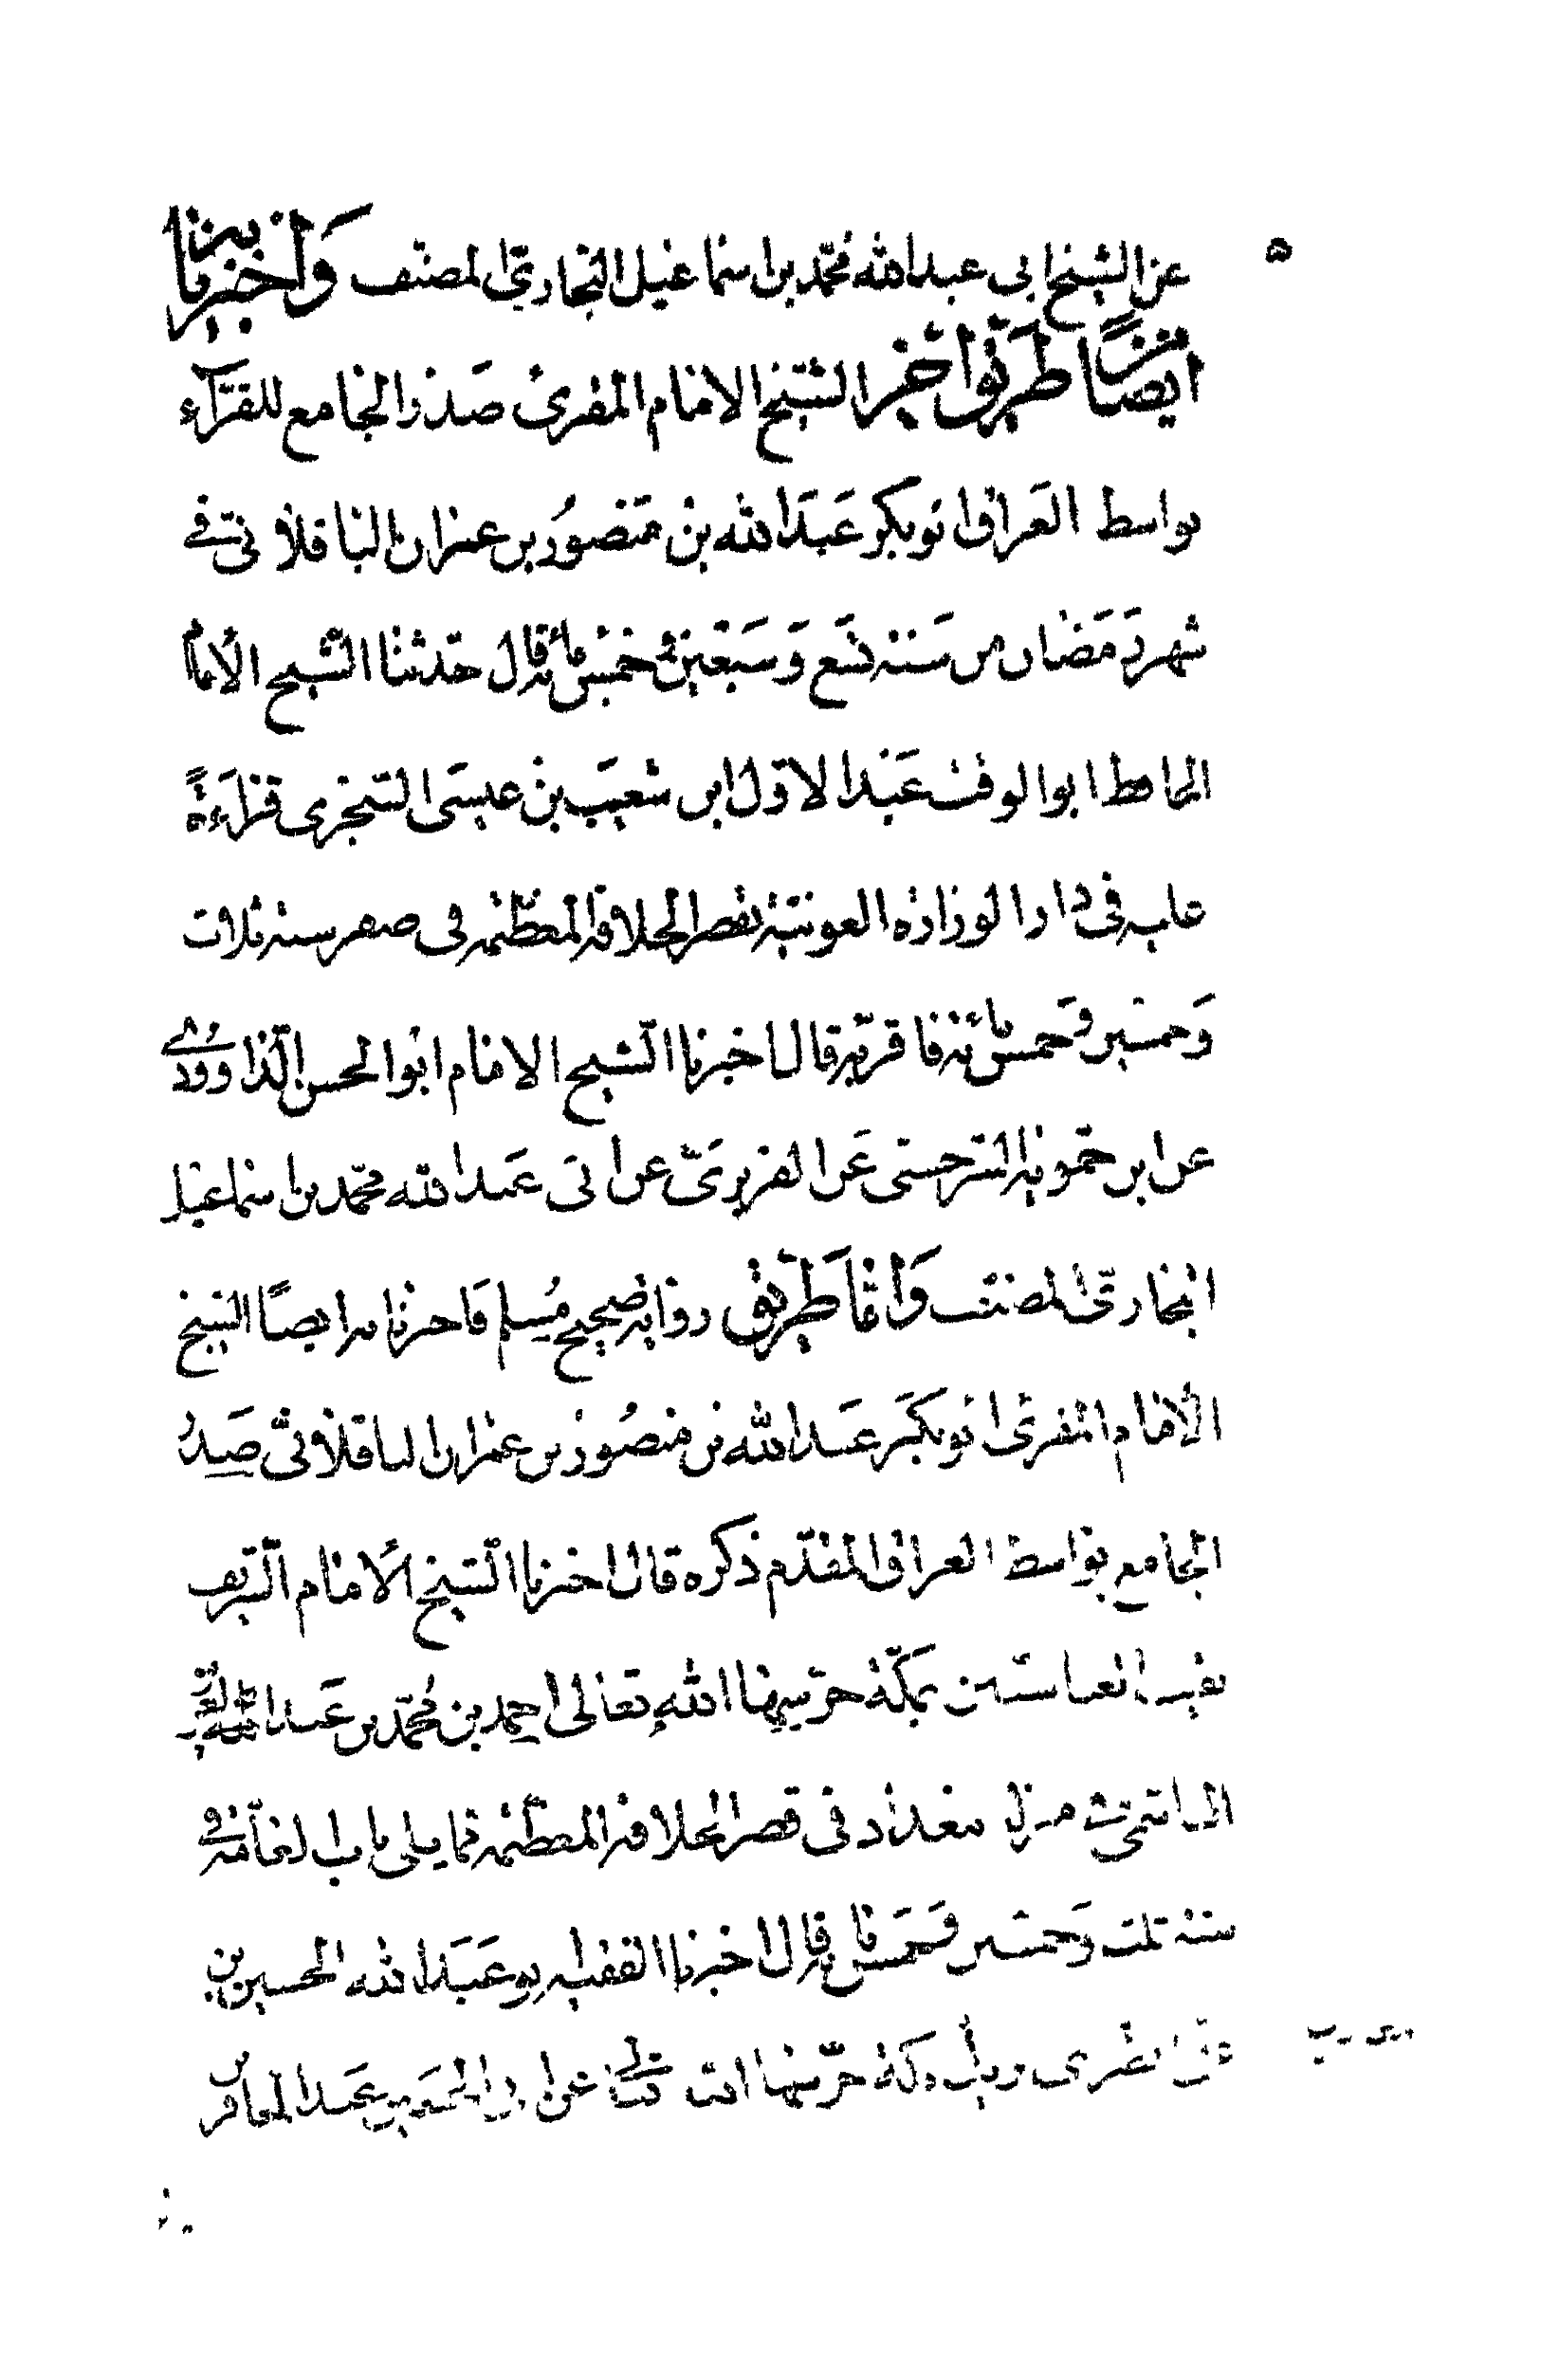 عن الشيخ ابي عبد الله محمد بن اسماعيل البخاري المصنف وَاخبرنا به
ايضًا من طريق اخر الشيخ الامام المقرئ صَدر الجامع للقرّآء
بواسط العَراق ابو بكر عَبدَ الله بن مَنصُور بن عمران الباقلاني في
شهر رَمَضان من سَنة تسَع وَسَبْعين وخمس مائة قال حَدثنا الشيخ الأمام
الحافظ ابو الوقت عَبْد الاوّل ابن شعيَب بن عيسَى السّجزى قراءَةً
عليه في دار الوزارة العونيّة بقصر الخلافة المعظّمة في صفر سنة ثلاث
وَخمسين وَخمس مائة فاقرّبه قال اخبرنا الشيخ الامام ابو الحسن الدّاوودي
عن ابن حمّويه السّرخسي عَن الفربرىّ عن ابى عَبد الله محمّد بن اسماعيل
البخارىّ المصنّف وَامّا طريق رواية صَحيح مُسلم فَاخبرنا به ايضًا الشيخ
الأمام المقرئ ابو بكَر عَبد الله بن منصُور بن عمران الباقلانيّ صَدرُ
الجامع بواسط العراق المقدّم ذكره قال اخبرنا الشيخ الأمام الشّريف
نقيب العباسيّين بمكّة حرسها الله تعالى احمد بن محُمّد بن عَبد العزيز
الهاشمي في منزله ببغداد في قصر الخلافة المعظّمة مما يلى باب العامّة في
سنة ثلث وَخمسين وَخمَس مائة قال اخبرنا الفقيه ابو عَبَد الله الحسين بن
على الطبرى نزيل مكة حرّسها الله تعالى عن ابى الحسين عبد الغافر بن